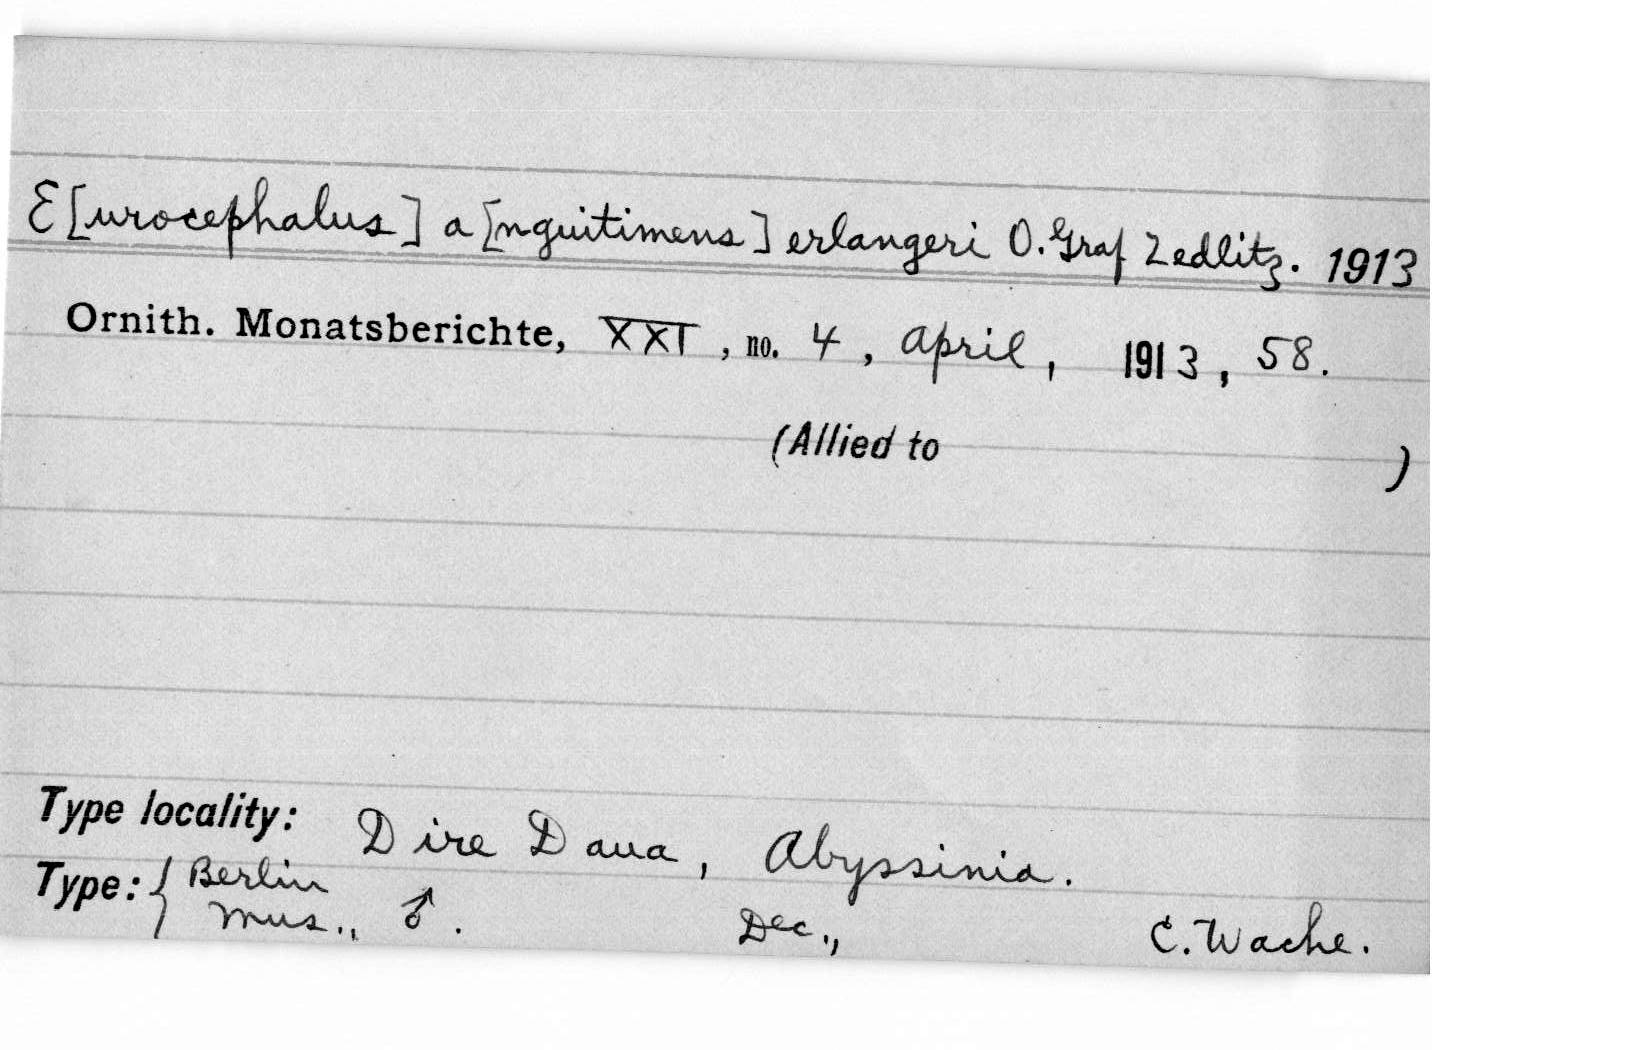 E[urocephalus] a[nguitimens] erlangeri O. Graf Zedlitz. 1913
Ornith. Monatsberichte, XXI, no. 4, April, 1913, 58.
(Allied to )
Type locality: Dire Daua, Abyssinia.
Type: { Berlin
Mus., ♂. Dec., C. Wache.